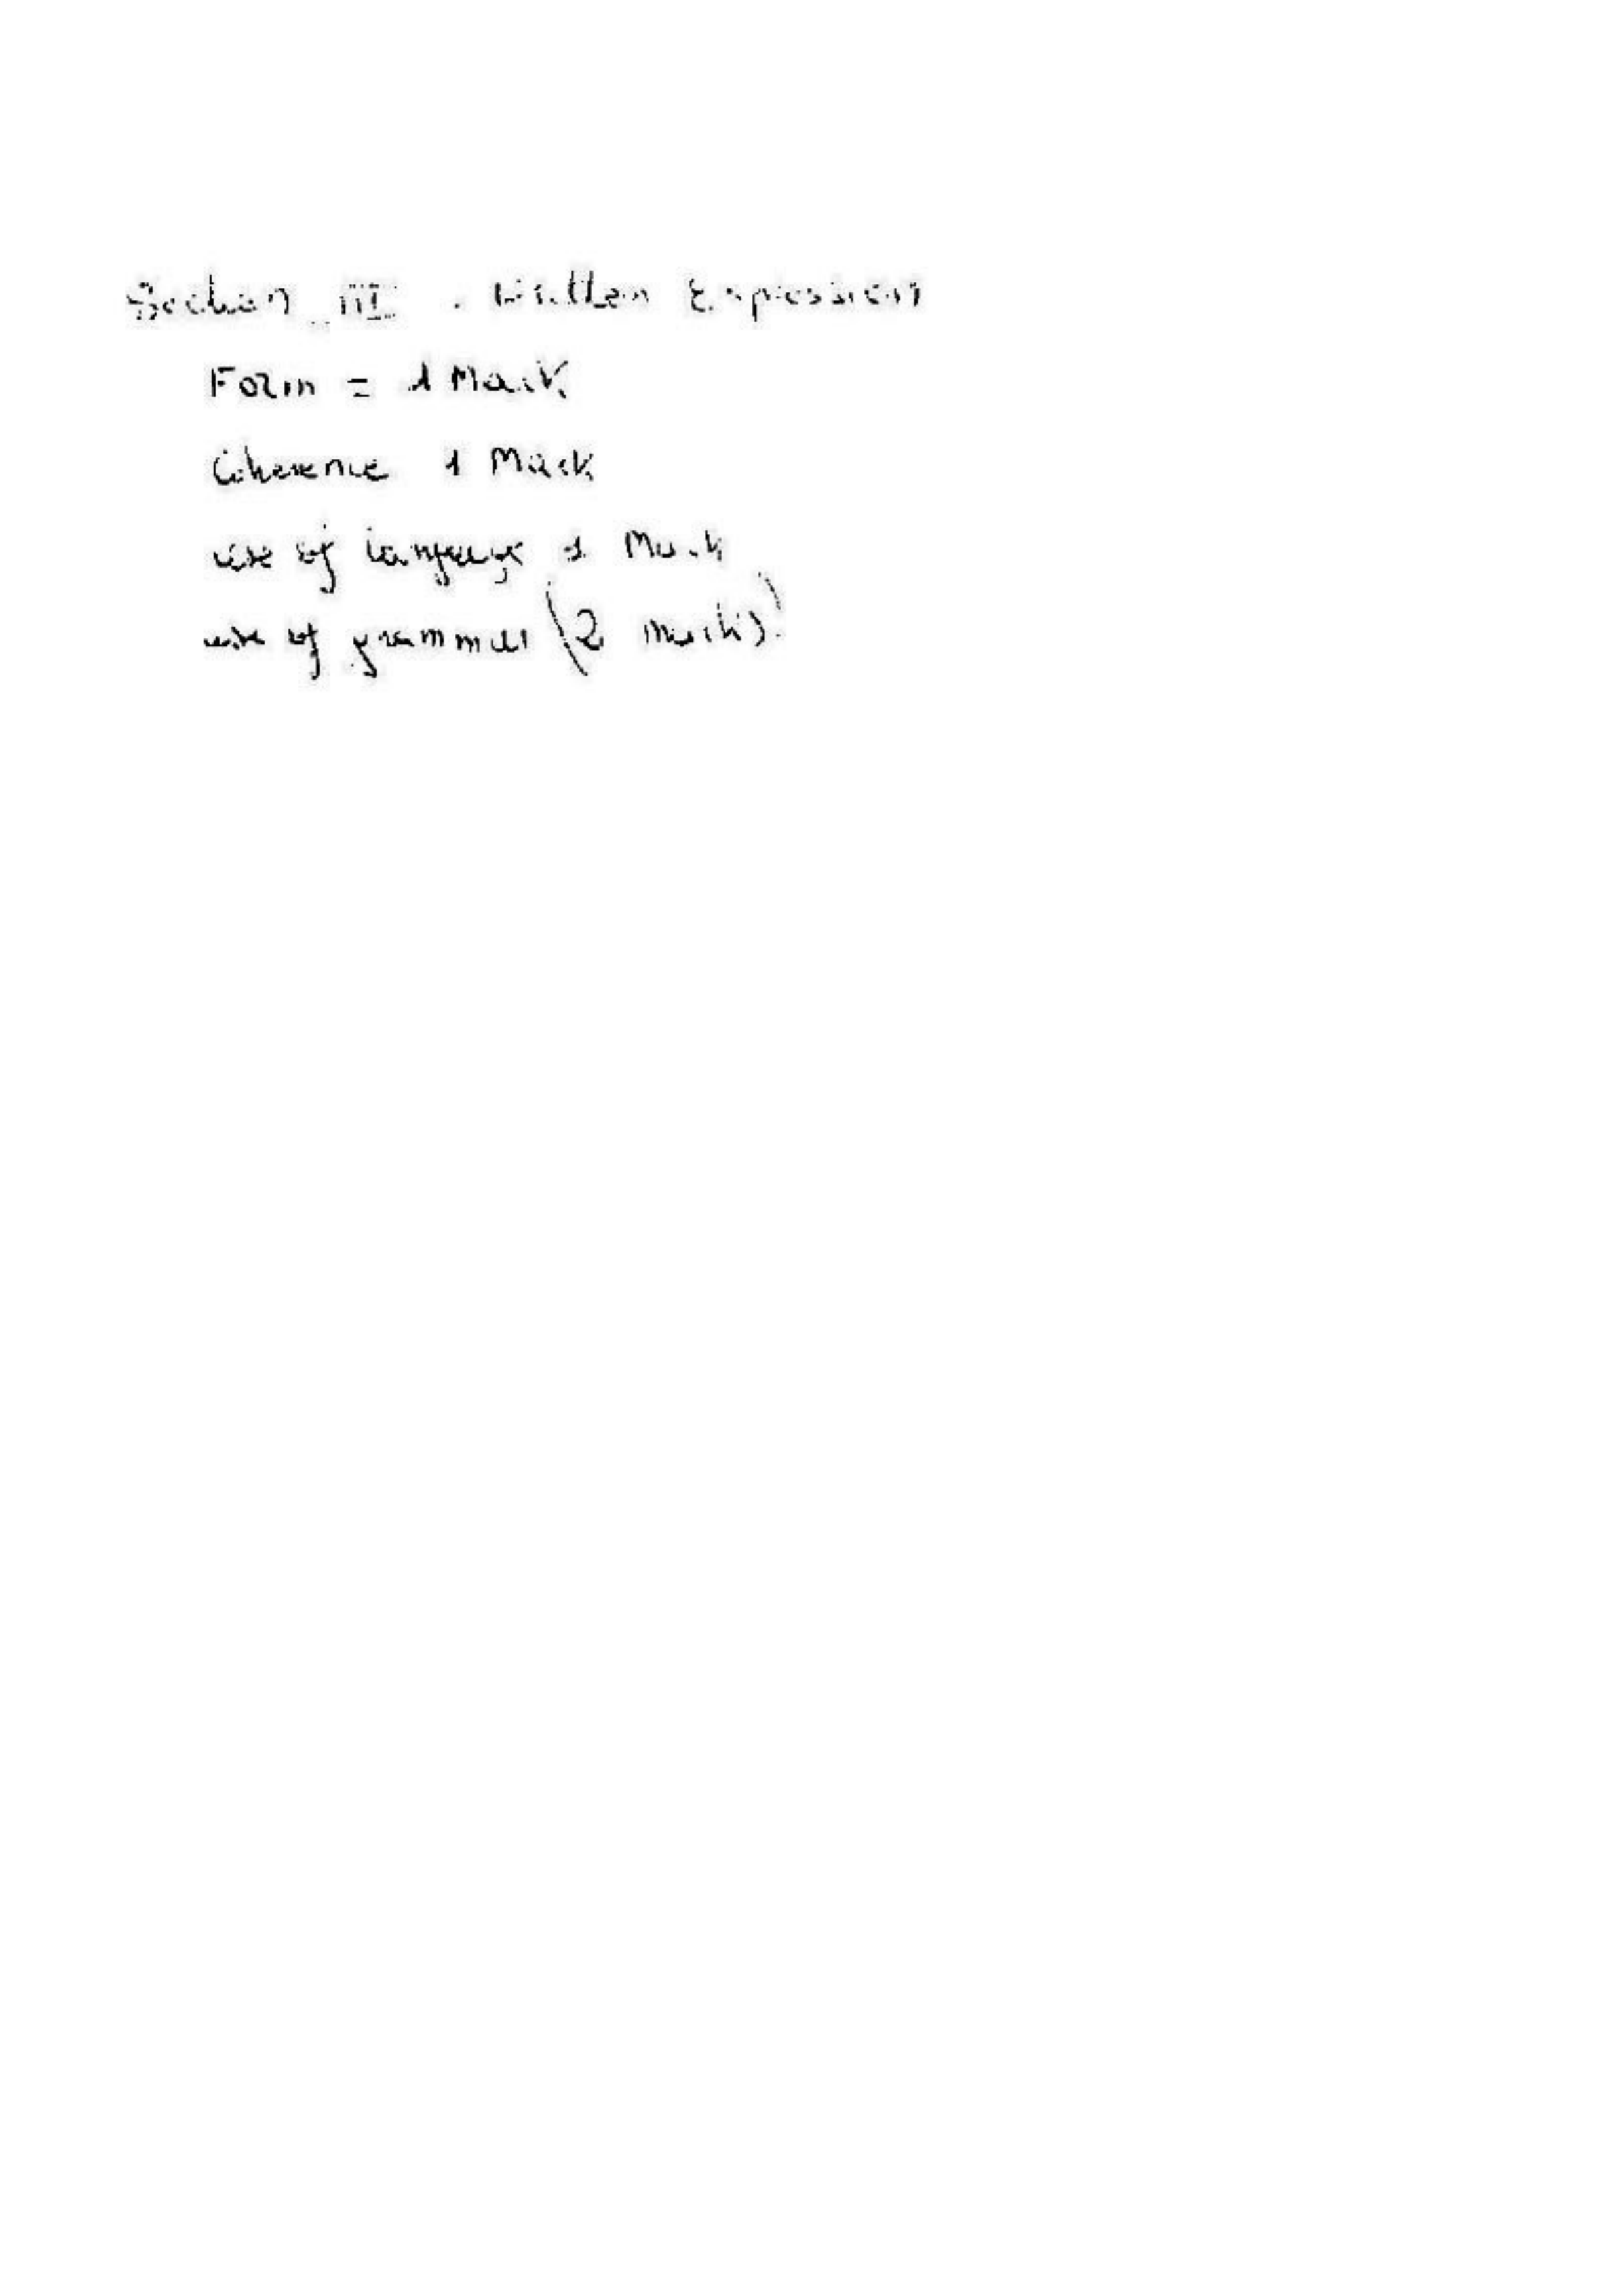 Section III . Written Expression
Form = 1 Mark
Coherence 1 Mark
use of language 1 Mark
use of grammar (2 marks).